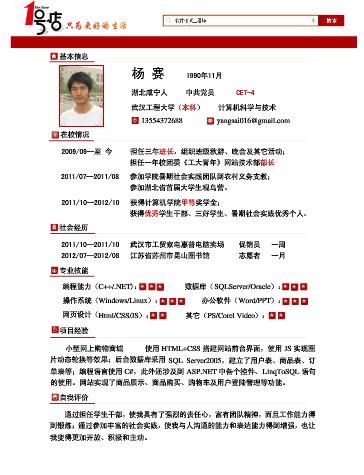 The Store
1号店 只为更好的生活
搜索
基本信息
杨 赛 1990年11月
湖北咸宁人 中共党员 CET-4
武汉工程大学（本科） 计算机科学与技术
13554372688 yangsai016@gmail.com
在校情况
2009/09—至 今 担任三年班长，组织班级秋游、晚会及其它活动；
担任一年校团委《工大青年》网站技术部部长
2011/07—2011/08 参加学院暑期社会实践团队到农村义务支教；
参加湖北省首届大学生观鸟营。
2011/10—2012/10 获得计算机学院甲等奖学金；
获得优秀学生干部、三好学生、暑期社会实践优秀个人。
社会经历
2011/10—2011/10 武汉市工贸家电惠普电脑卖场 促销员 一周
2012/07—2012/08 江苏省苏州市昆山图书馆 志愿者 一月
专业技能
编程能力（C++/.NET）： 数据库（SQLServer/Oracle）：
操作系统（Windows/Linux）： 办公软件（Word/PPT）：
网页设计（Html/CSS/JS）： 其它（PS/Corel Video）：
项目经验
小型网上购物商城 使用 HTML+CSS 搭建网站前台界面，使用 JS 实现图
片动态轮换等效果；后台数据库采用 SQL Server2005，建立了用户表、商品表、订
单表等；编程语言使用 C#，此外还涉及到 ASP.NET 中各个控件、LinqToSQL 语句
的使用。网站实现了商品展示、商品购买、购物车及用户登陆管理等功能。
自我评价
通过担任学生干部，使我具有了强烈的责任心，富有团队精神，而且工作能力得
到锻炼；通过参加丰富的社会实践，使我与人沟通的能力和表达能力得到增强，也让
我变得更加开放、积极和主动。